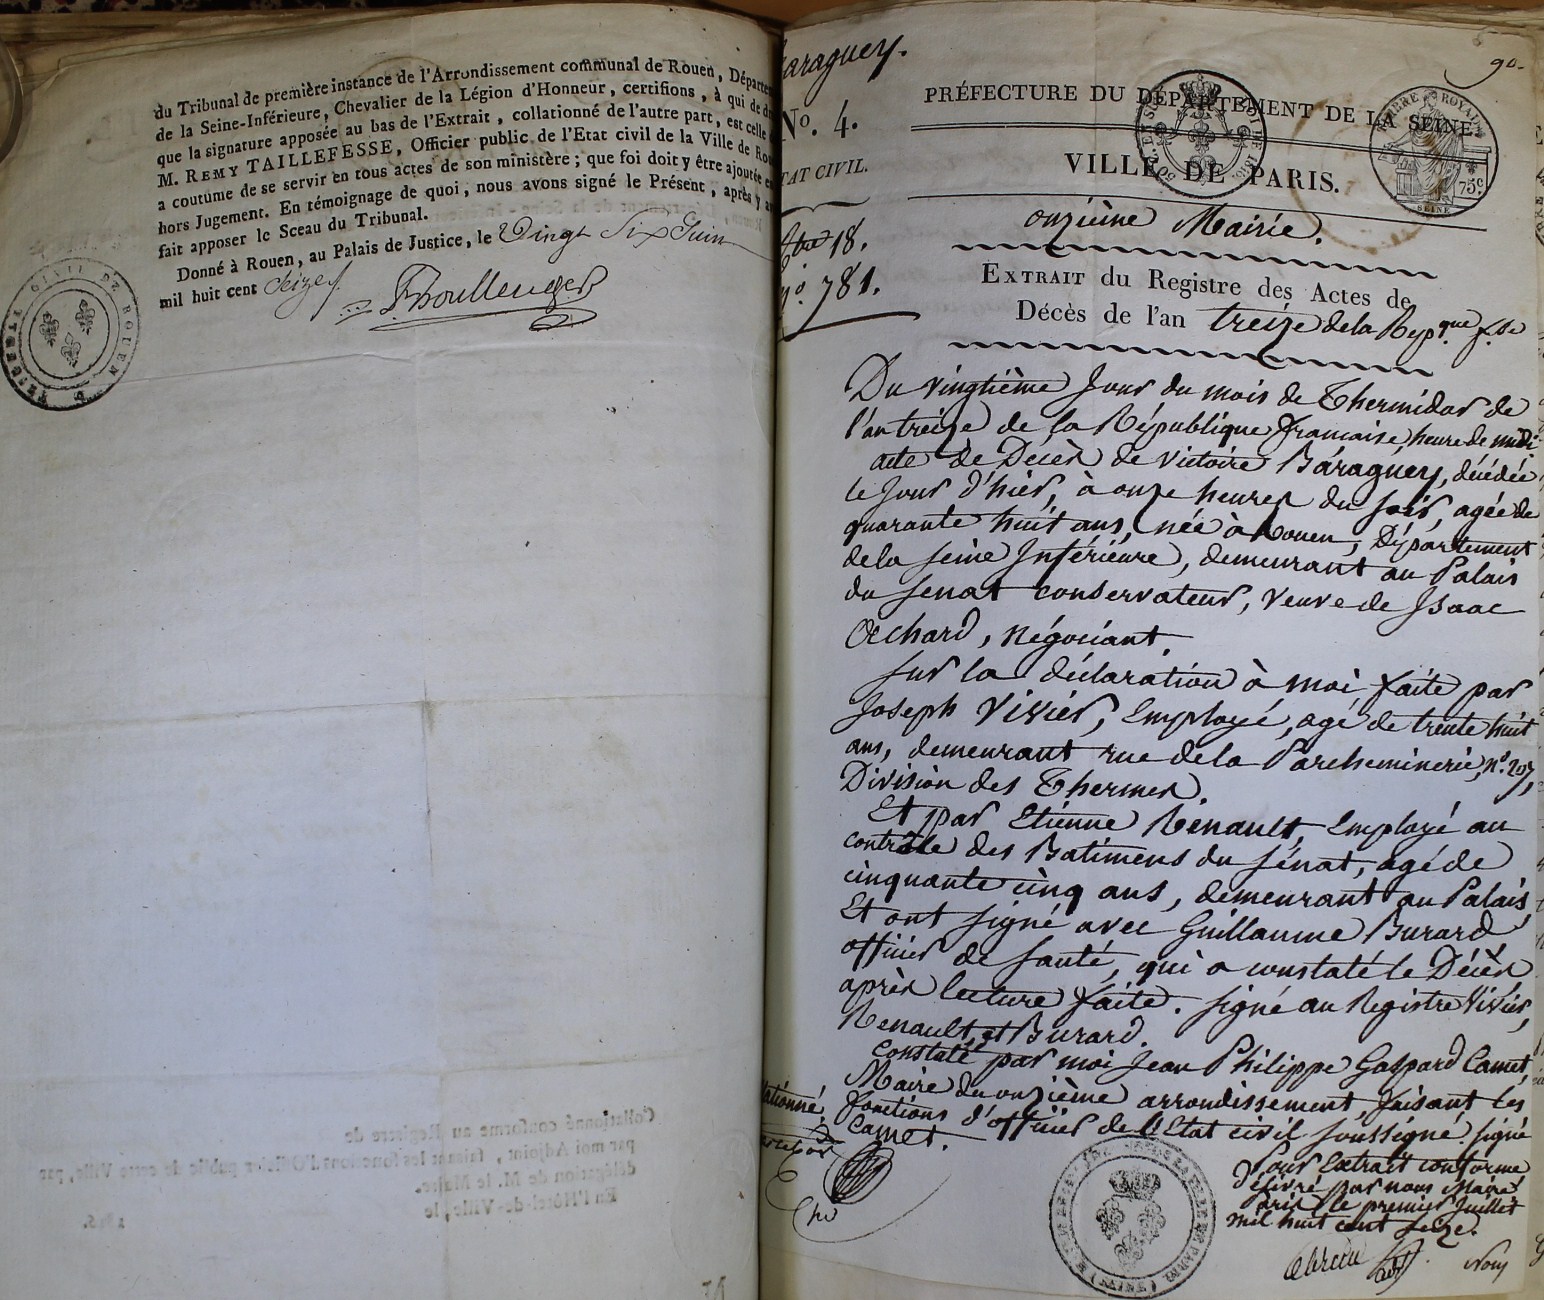 du Tribunal de première instance de l'Arrondissement communal de Rouen, Départem
de la Seine-Inférieure, Chevalier de la Légion d'Honneur, certifions, à qui de d
que la signature apposée au bas de l'Extrait, collationné de l'autre part, est celle
M. REMY TAILLEFESSE, Officier public de l'Etat civil de la Ville de Ro
a coutume de se servir en tous actes de son ministère; que foi doit y être ajoutée e
hors Jugement. En témoignage de quoi, nous avons signé le Présent, après y a
fait apposer le Sceau du Tribunal.
Donné à Rouen, au Palais de Justice, le Vingt Six Juin
mil huit cent Seize
Boullenger
TRIBUNAL CIVIL DE ROUEN
Collationné conforme au Registre de
par moi Adjoint, faisant les fonctions d'Officier public de cette Ville, par
délégation de M. le Maire.
En l'Hôtel-de-Ville, le
90.
araguey.
No. 4.
TAT CIVIL.
18.
781.
PRÉFECTURE DU DÉPARTEMENT DE LA SEINE
VILLE DE PARIS.
TIMBRE ROYAL
75c
SEINE
onzième Mairie.
EXTRAIT du Registre des Actes de
Décès de l'an treize de la Repque fse
Du vingtième Jour du mois de Thermidor de
l'an treize de la République française, heure de midi
acte de Décès de Victoire Baraguey, décédée
le Jour d'hier, à onze heures du soir, agée de
quarante huit ans, née à Rouen, Département
de la seine Inférieure, demeurant au Palais
du senat conservateur, veuve de Isaac
Ochard, négociant.
sur la déclaration à moi faite par
Joseph Vivier, employé, agé de trente huit
ans, demeurant rue de la Parcheminerie, no. 207,
Division des Thermes.
Et par Etienne Renault, Employé au
contrôle des Batimens du sénat, agé de
cinquante cinq ans, demeurant au Palais,
Et ont signé avec Guillaume Burard
officier de santé, qui a constaté le Décès
après lecture faite. signé au Registre Vivier,
Renault et Burard.
constaté par moi Jean Philippe Gaspard Camet,
Maire du onzième arrondissement, faisant les
fonctions d'officier de l'Etat civil soussigné. signé
Camet.
lationné
Pour Extrait conforme
Délivré par nous Maire
Paris le premier Juillet
mil huit cent seize.